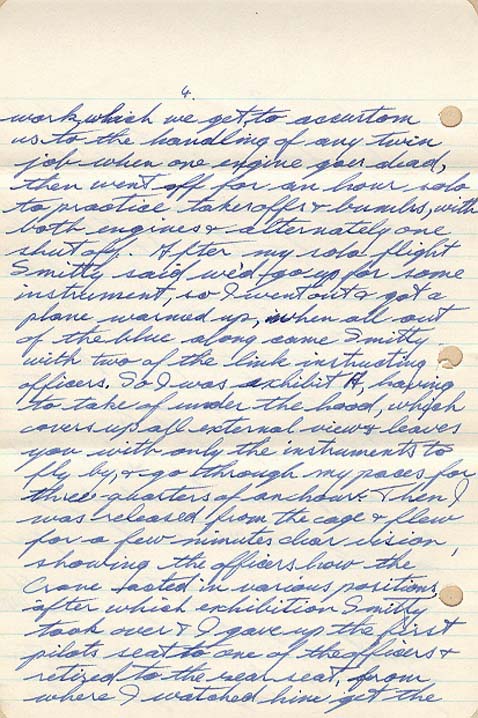 4.
work, which we get, to accustom
us to the handling of any twin
job when one engine goes dead,
then went off for an hour solo
to practice takeoffs & bumbs, with
both engines & alternately one
shut off. After my solo flight
Smitty said we'd go up for some
instrument, so I went out & got a
plane warmed up, when all out
of the blue along came Smitty
with two of the link instructing
officers. So I was exhibit A, having
to take of under the hood, which
covers up all external view & leaves
you with only the instruments to
fly by, & go through my paces for
three-quarters of an hour. Then I
was released from the cage & flew
for a few minutes clear vision,
showing the officers how the
Crane acted in various positions,
after which exhibition Smitty
took over & I gave up the first
pilots seat to one of the officers &
retired to the rear seat, from
where I watched him get the